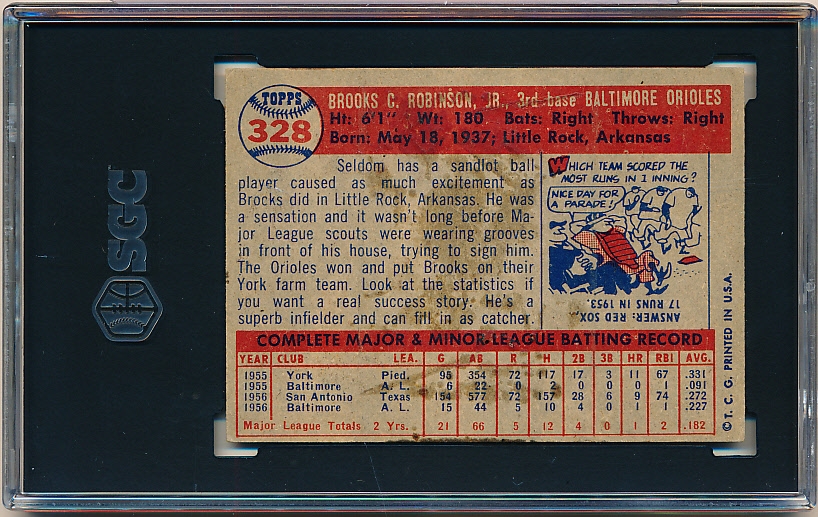 SGC
TOPPS
328
BROOKS C. ROBINSON, JR., 3rd base BALTIMORE ORIOLES
Ht: 6'1" Wt: 180 Bats: Right Throws: Right
Born: May 18, 1937; Little Rock, Arkansas
Seldom has a sandlot ball
player caused as much excitement as
Brooks did in Little Rock, Arkansas. He was
a sensation and it wasn't long before Ma-
jor League scouts were wearing grooves
in front of his house, trying to sign him.
The Orioles won and put Brooks on their
York farm team. Look at the statistics if
you want a real success story. He's a
superb infielder and can fill in as catcher.
WHICH TEAM SCORED THE
MOST RUNS IN 1 INNING?
NICE DAY FOR
A PARADE!
ANSWER: RED SOX,
17 RUNS IN 1953.
COMPLETE MAJOR & MINOR-LEAGUE BATTING RECORD
YEAR CLUB LEA. G AB R H 2B 3B HR RBI AVG.
1955 York Pied. 95 354 72 117 17 3 11 67 .331
1955 Baltimore A. L. 6 22 0 2 0 0 0 1 .091
1956 San Antonio Texas 154 577 72 157 28 6 9 74 .272
1956 Baltimore A. L. 15 44 5 10 4 0 1 1 .227
Major League Totals 2 Yrs. 21 66 5 12 4 0 1 2 .182
© T. C. G. PRINTED IN U.S.A.